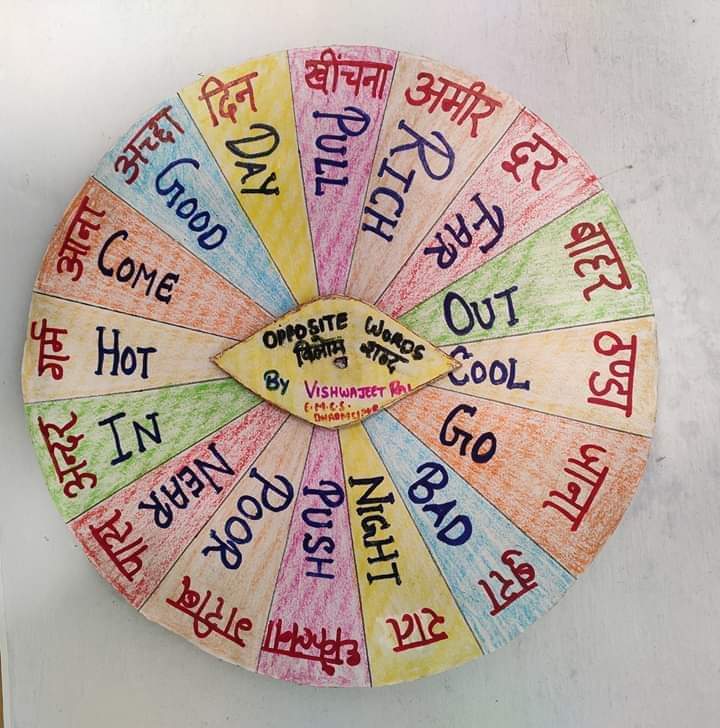 OPPOSITE WORDS
विलोम शब्द
By VISHWAJEET RAI
खींचना
PULL
अमीर
RICH
दूर
FAR
बाहर
OUT
ठण्डा
COOL
जाना
GO
बुरा
BAD
रात
NIGHT
धकेलना
PUSH
गरीब
POOR
पास
NEAR
अन्दर
IN
गर्म
HOT
आना
COME
अच्छा
GOOD
दिन
DAY